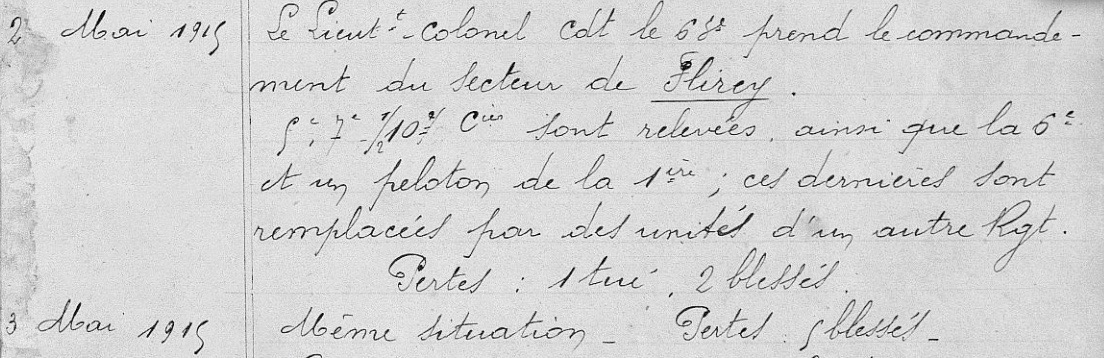 2 Mai 1915 Le Lieut^t-Colonel Cdt le 63e prend le commande-
ment du secteur de Flirey.
5e, 7e 1/2 10e Cies sont relevées, ainsi que la 6e
et un peloton de la 1ère ; ces dernières sont
remplacées par des unités d'un autre Rgt.
Pertes : 1 tué, 2 blessés.
3 Mai 1915 Même situation - Pertes : 5 blessés -